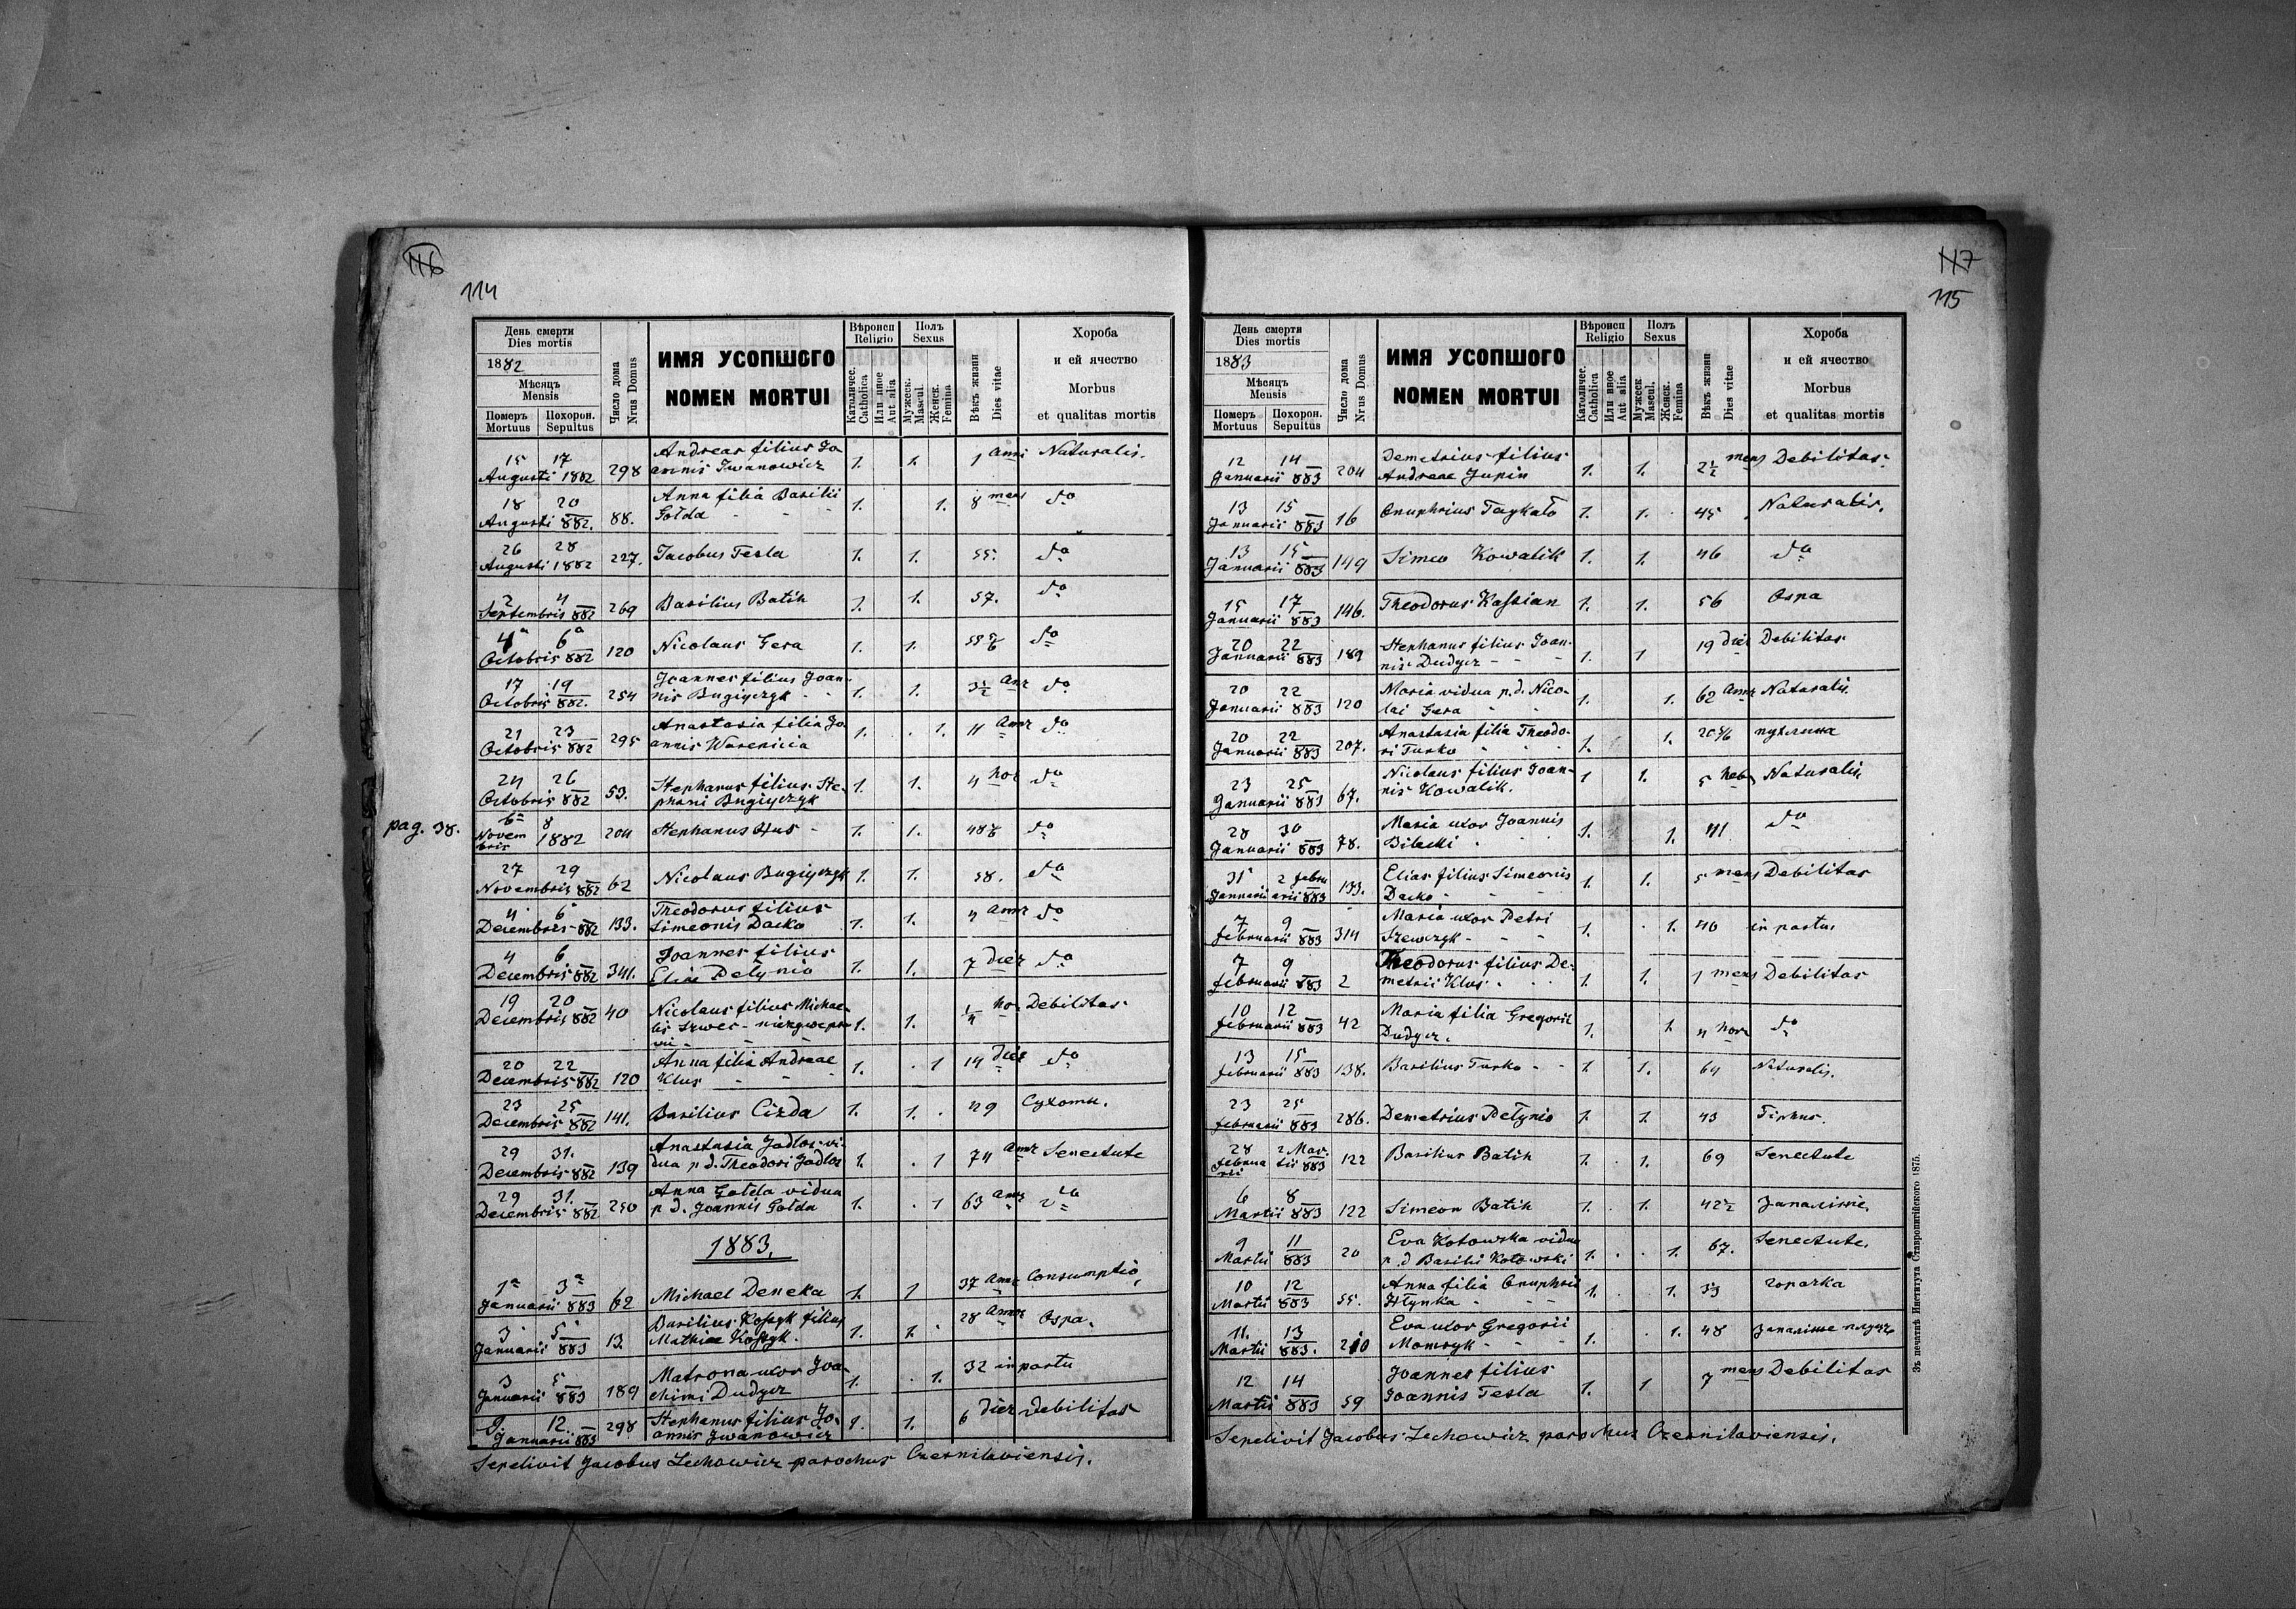 116
114
День смерти
Dies mortis
1882
Мѣсяцъ
Mensis
Померъ Похорон.
Mortuus Sepultus
Число дома
Nrus Domus
ИМЯ УСОПШОГО
NOMEN MORTUI
Вѣроисп
Religio
Католичес.
Catholica
Или иное
Aut alia
Полъ
Sexus
Мужеск.
Mascul.
Женск.
Femina
Вѣкъ жизни
Dies vitae
Хороба
и ей ячество
Morbus
et qualitas mortis
15 17 Andreas filius Jo
Augusti 1882 298 annis Iwanowicz 1. 1. 1 anni Naturalis.
18 20 Anna filia Basilii
Augusti 882. 88. Gołda 1. 1. 8 mens do
26 28
Augusti 1882 227. Jacobus Tesla 1. 1. 55. do
2 4
Septembris 882 269 Basilius Batih 1. 1. 57. do
4a 6a
Octobris 882 120 Nicolaus Gera 1. 1. do
17 19 Joannes filius Joan-
Octobris 882. 254 nis Bugiyczyk 1. 1. 3½ do
21 23 Anastasia filia Jo
Octobris 882 295 annis Warenicia 1. 1. 11 do
24 26 Stephanus filius Ste-
Octobris 882 53. phani Bugiyczyk 1. 1. 4 hor do
pag. 38.
6a 8
Novembris 1882 204 Stephanus 1. 1. do
27 29
Novembris 882 62 Nicolaus Bugiyczyk 1. 1. 58. do
4 6 Theodorus filius
Decembris 882 133. Simeonis Dacko 1. 1. 4 do
4 6 Joannes filius
Decembris 882 341. Eliae Petynio 1. 1. 7 dier do
19 20 Nicolaus filius Michae-
Decembris 882 40 lis Szwec 1. 1. ¼ hor Debilitas
20 22 Anna filia Andreae
Decembris 882 120 Klus 1. 1 14 dier do
23 25
Decembris 882 141. Basilius Cizda 1. 1. 49 Сухоты.
29 31. Anastasia Jadlos vi-
Decembris 882 139 dua p.d. Theodori Jadlos 1. 1 74 Senectute
29 31. Anna Gołda vidua
Decembris 882 250 p.d. Joannis Gołda 1. 1 63 do
1883.
1a 3a
Januarii 883 62 Michael Deneka 1. 1 37 Consumptio
3 5 Basilius Kostyk filius
Januarii 883 13. Mathiae Kostyk. 1. 1. 28 Ospa.
3 5 Matrona uxor Joa-
Januarii 883 189 chimi Dudycz 1. 1. 32 in partu
12. Stephanus filius Jo-
Januarii 883 298 annis Iwanowicz 1. 1. 6 dier Debilitas
Sepelivit Jacobus Lechowicz parochus Czernilaviensis.
117
115
День смерти
Dies mortis
1883
Мѣсяцъ
Mensis
Померъ Похорон.
Mortuus Sepultus
Число дома
Nrus Domus
ИМЯ УСОПШОГО
NOMEN MORTUI
Вѣроисп
Religio
Католичес.
Catholica
Или иное
Aut alia
Полъ
Sexus
Мужеск
Mascul.
Женск.
Femina
Вѣкъ жизни
Dies vitae
Хороба
и ей ячество
Morbus
et qualitas mortis
12 14 Demetrius filius
Januarii 883 204 Andreae Jupin 1. 1. 2½ mens Debilitas.
13 15
Januarii 883 16 Onuphrius Taykało 1. 1. 45 Naturalis.
13 15
Januarii 883 149 Simeo Kowalik 1. 1. 46 do
15 17
Januarii 883 146. Theodorus Kassian 1. 1. 56 Ospa
20 22 Stephanus filius Joan-
Januarii 883 189 nis Dudycz 1. 1 19 dier Debilitas
20 22 Maria vidua p.d. Nico-
Januarii 883 120 lai Gera 1. 1. 62 Naturalis.
20 22 Anastasia filia Theodo-
Januarii 883 207. ri Turko 1. 1. 20 5/6 пухлина
23 25 Nicolaus filius Joan-
Januarii 883 67. nis Kowalik. 1 1. 5 heb Naturalis
28 30 Maria uxor Joannis
Januarii 883 78. Bilecki 1. 1. 41 do
31 2 febru Elias filius Simeonis
Januarii arii 883 133. Dacko 1. 1. 5 mens Debilitas
7 9 Maria uxor Petri
februarii 883 314 Szewczyk 1. 1. 40 in partu
7 9 Theodorus filius De-
februarii 883 2 metrii Klus 1. 1. 1 mens Debilitas
10 12 Maria filia Gregorii
februarii 883 42 Dudycz. 1. 1. 4 hor do
13 15
februarii 883 138. Basilius Turko 1. 1. 64 Naturalis.
23 25
februarii 883 286. Demetrius Petynio 1. 1. 43
28 2 Mar-
februarii tii 883 122 Basilius Batih 1. 1. 69 Senectute
6 8
Martii 883 122 Simeon Batih 1. 1. 42½ Запаліннє.
9 11 Eva Kotowska vidua
Martii 883 20 p.d Basilii Kotowski 1. 1. 67. Senectute.
10 12 Anna filia Onuphrii
Martii 883 55. Hłynka 1. 1. горачка
11. 13 Eva uxor Gregorii
Martii 883. 210 Momryk 1. 1. 48
12 14 Joannes filius
Martii 883 59 Joannis Tesla 1. 1 7 mens Debilitas
Sepelivit Jacobus Lechowicz parochus Czernilaviensis.
Зъ печатнѣ Института Ставропигійского 1875.